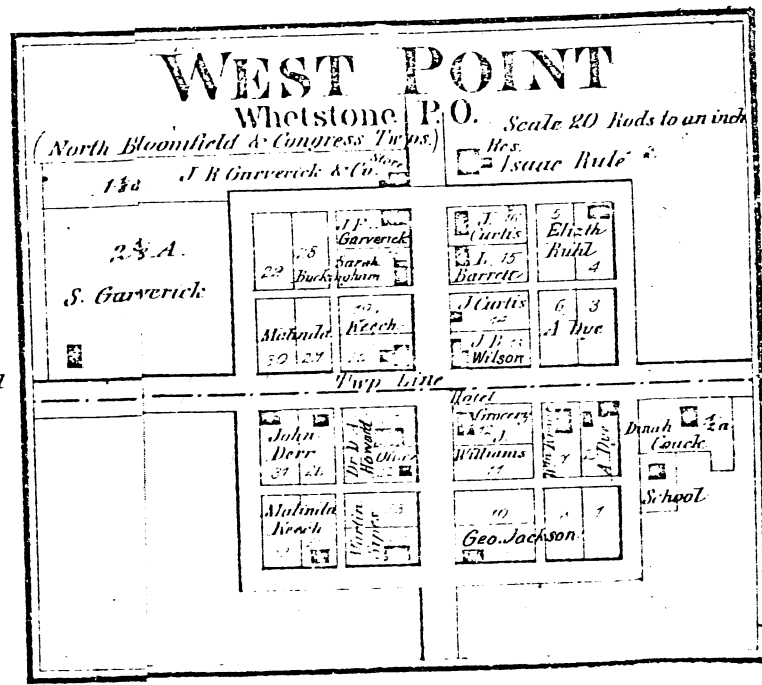 WEST POINT
Whetstone P.O.
(North Bloomfield & Congress Twps.)
Scale 20 Rods to an inch
Res.
Isaac Rule
J R Garverick & Co.
Store
2 4/5 A.
S. Garverick
J F
Garverick
Sarah
Buckingham
29
28
J. 16
Curtis
L. 15
Barrett
5
Elizth
Ruhl
4
Malinda
Keech
30 27
J Curtis
14
J B 13
Wilson
6 3
A Dye
Twp Line
Hotel
Grocery
12 J.
Williams
11
John
Derr
31 26
Dr D A
Howard
Office
7
2
A. Dye
Dinah
Couck
1/2 a
School
Malinda
Keech
Martin
Sipes
23
10
8 1
Geo. Jackson